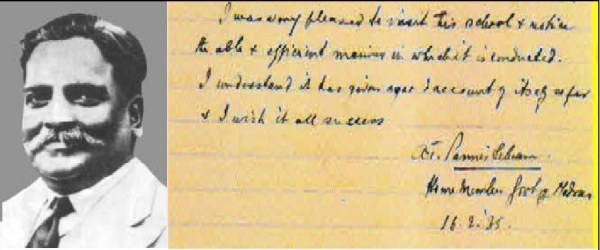 I was very pleased to visit this school & notice
the able & efficient manner in which it is conducted.
I understand it has given a good account of itself so far
& I wish it all success
A.T. Pannirselvam.
Home Member Govt of Madras
16.2.35.